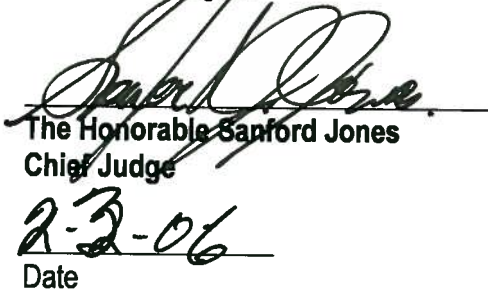 Sanford J. Jones
The Honorable Sanford Jones
Chief Judge
2-3-06
Date